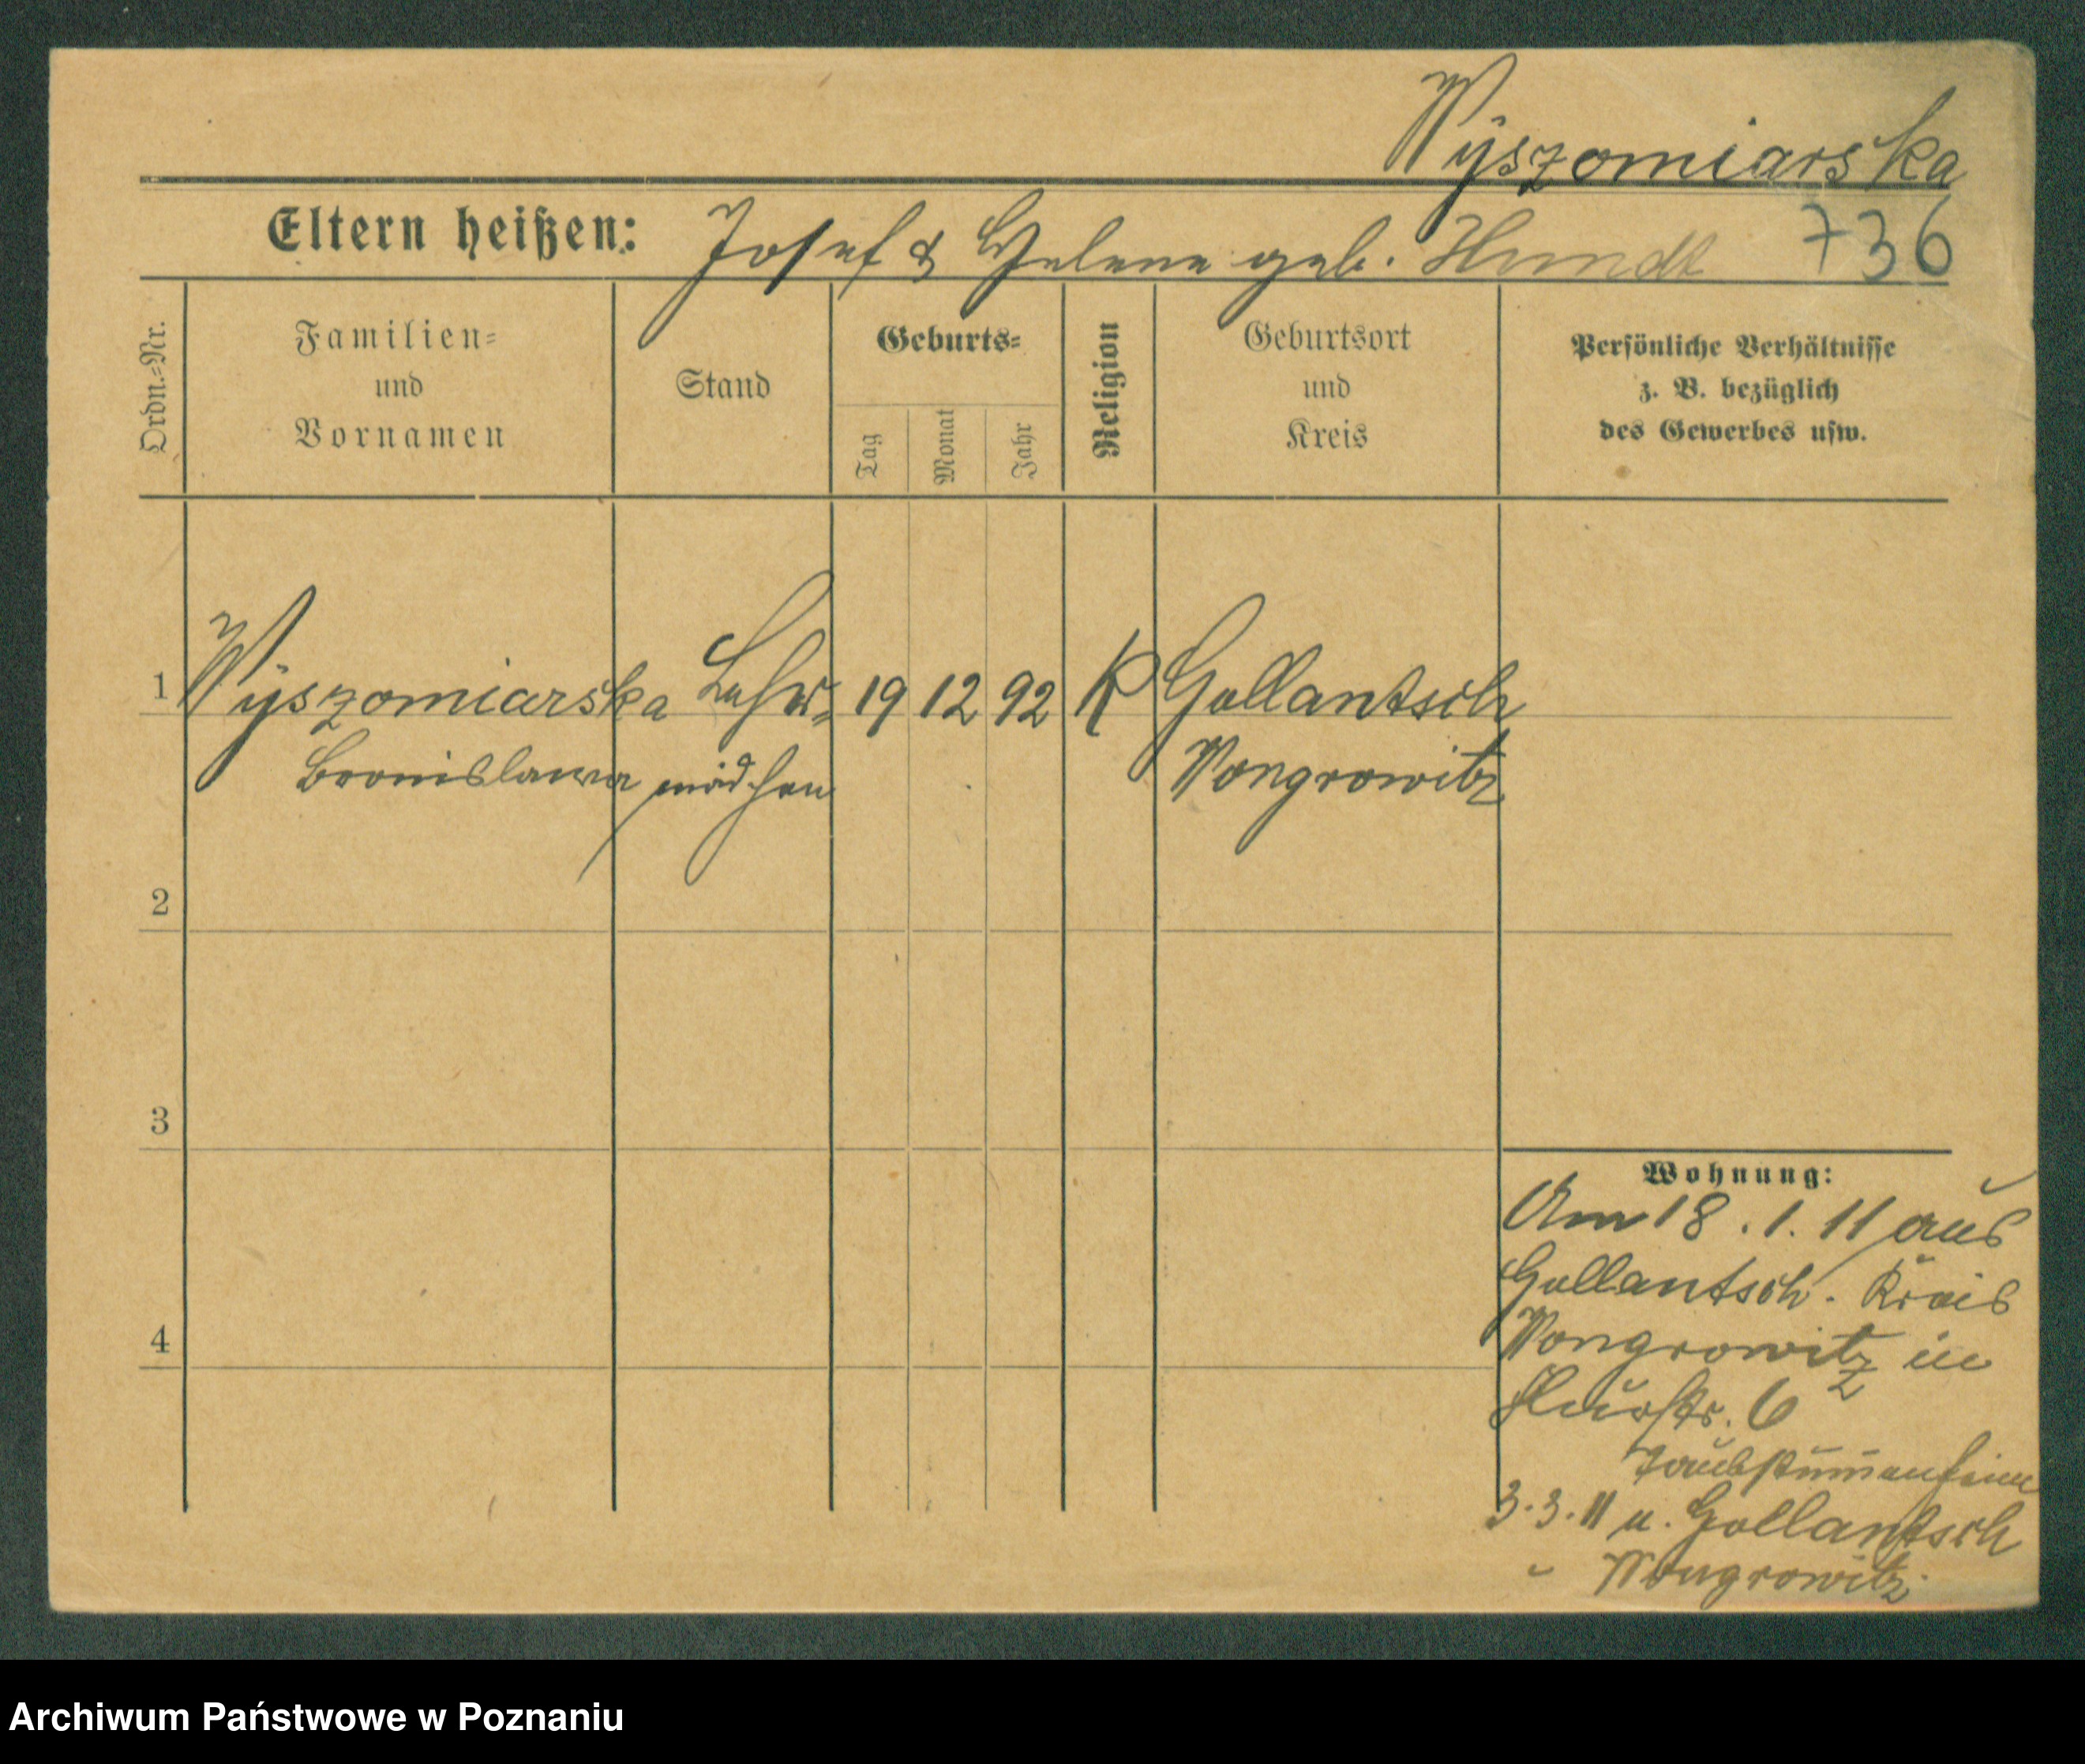 Wyszomiarska
Eltern heißen: Josef & Helene geb. Hundt 736
Ordn.=Nr.
Familien=
und
Vornamen
Stand
Geburts=
Tag
Monat
Jahr
Religion
Geburtsort
und
Kreis
Persönliche Verhältnisse
z. B. bezüglich
des Gewerbes usw.
1 Wyszomiarska Lehr= 19 12 92 K Gollantsch
Bronislawa mädchen Wongrowitz
2
3
4
Wohnung:
Am 18.1.11 aus
Gollantsch. Kreis
Wongrowitz in
Flurstr. 6
Taubstummenheim
3.3.11 n. Gollantsch
Wongrowitz.
Archiwum Państwowe w Poznaniu